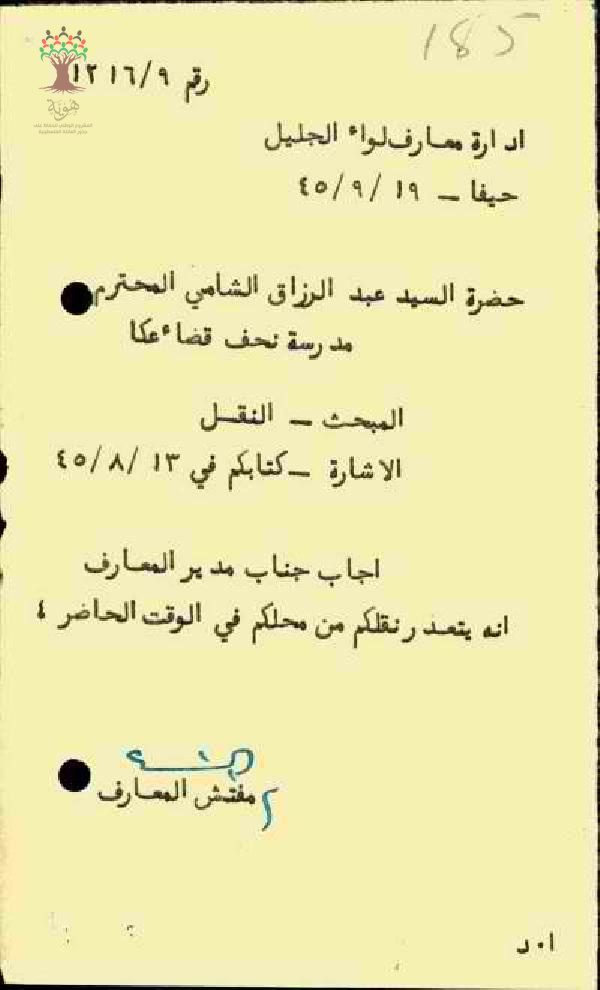 185
رقم ١٢١٦/٩
هوية
ادارة معارف لواء الجليل
حيفا ــ ١٩/ ٩/ ٤٥
حضرة السيد عبد الرزاق الشامي المحترم
مدرسة نحف قضاء عكا
المبحث ــ النقل
الاشارة ــ كتابكم في ١٣ /٤٥/٨
اجاب جناب مدير المعارف
انه يتعذر نقلكم من محلكم في الوقت الحاضر ٤
مفتش المعارف
ا٠د